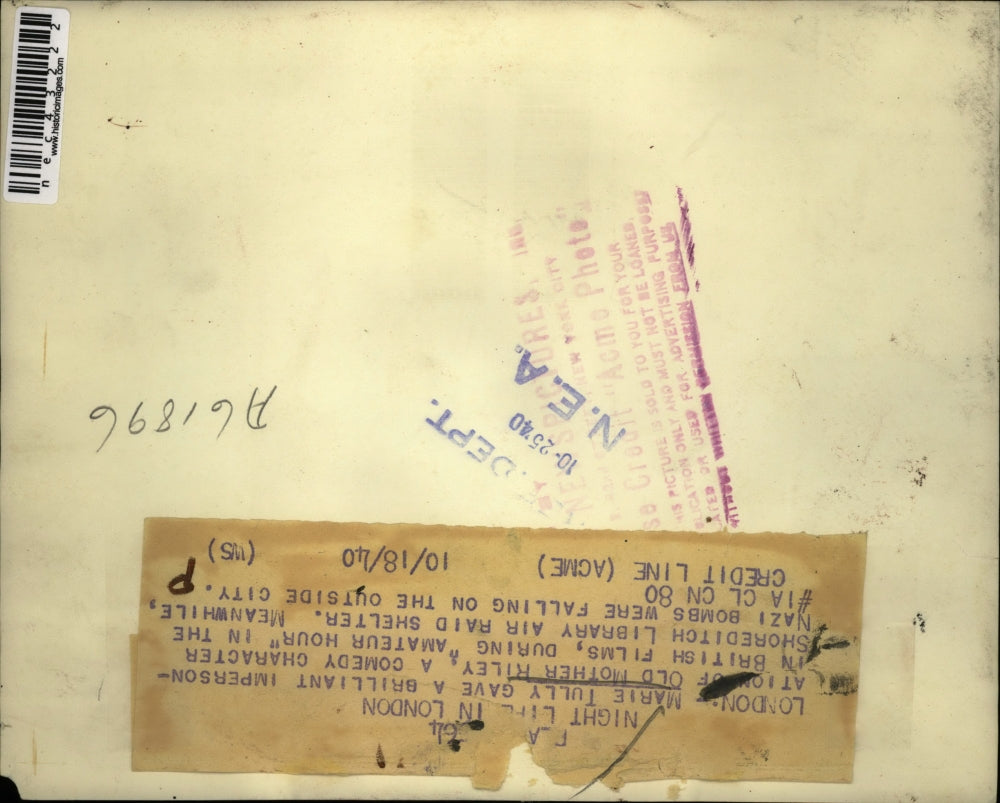 n e c 4 3 2 2 2
www.historicimages.com
BY
NEWSPICTURES, INC.
NEW YORK CITY
Credit "Acme Photo"
THIS PICTURE IS SOLD TO YOU FOR YOUR
PUBLICATION ONLY AND MUST NOT BE LOANED,
OR USED FOR ADVERTISING PURPOSES
WITHOUT WRITTEN PERMISSION FROM US
N.E.A.
10-25-40
DEPT.
A61896
F-A 64
NIGHT LIFE IN LONDON
LONDON: MARIE TULLY GAVE A BRILLIANT IMPERSON-
ATION OF OLD MOTHER RILEY, A COMEDY CHARACTER
IN BRITISH FILMS, DURING "AMATEUR HOUR" IN THE
SHOREDITCH LIBRARY AIR RAID SHELTER. MEANWHILE,
NAZI BOMBS WERE FALLING ON THE OUTSIDE CITY.
#1A CL CN 80
CREDIT LINE (ACME) 10/18/40 (WS)
P